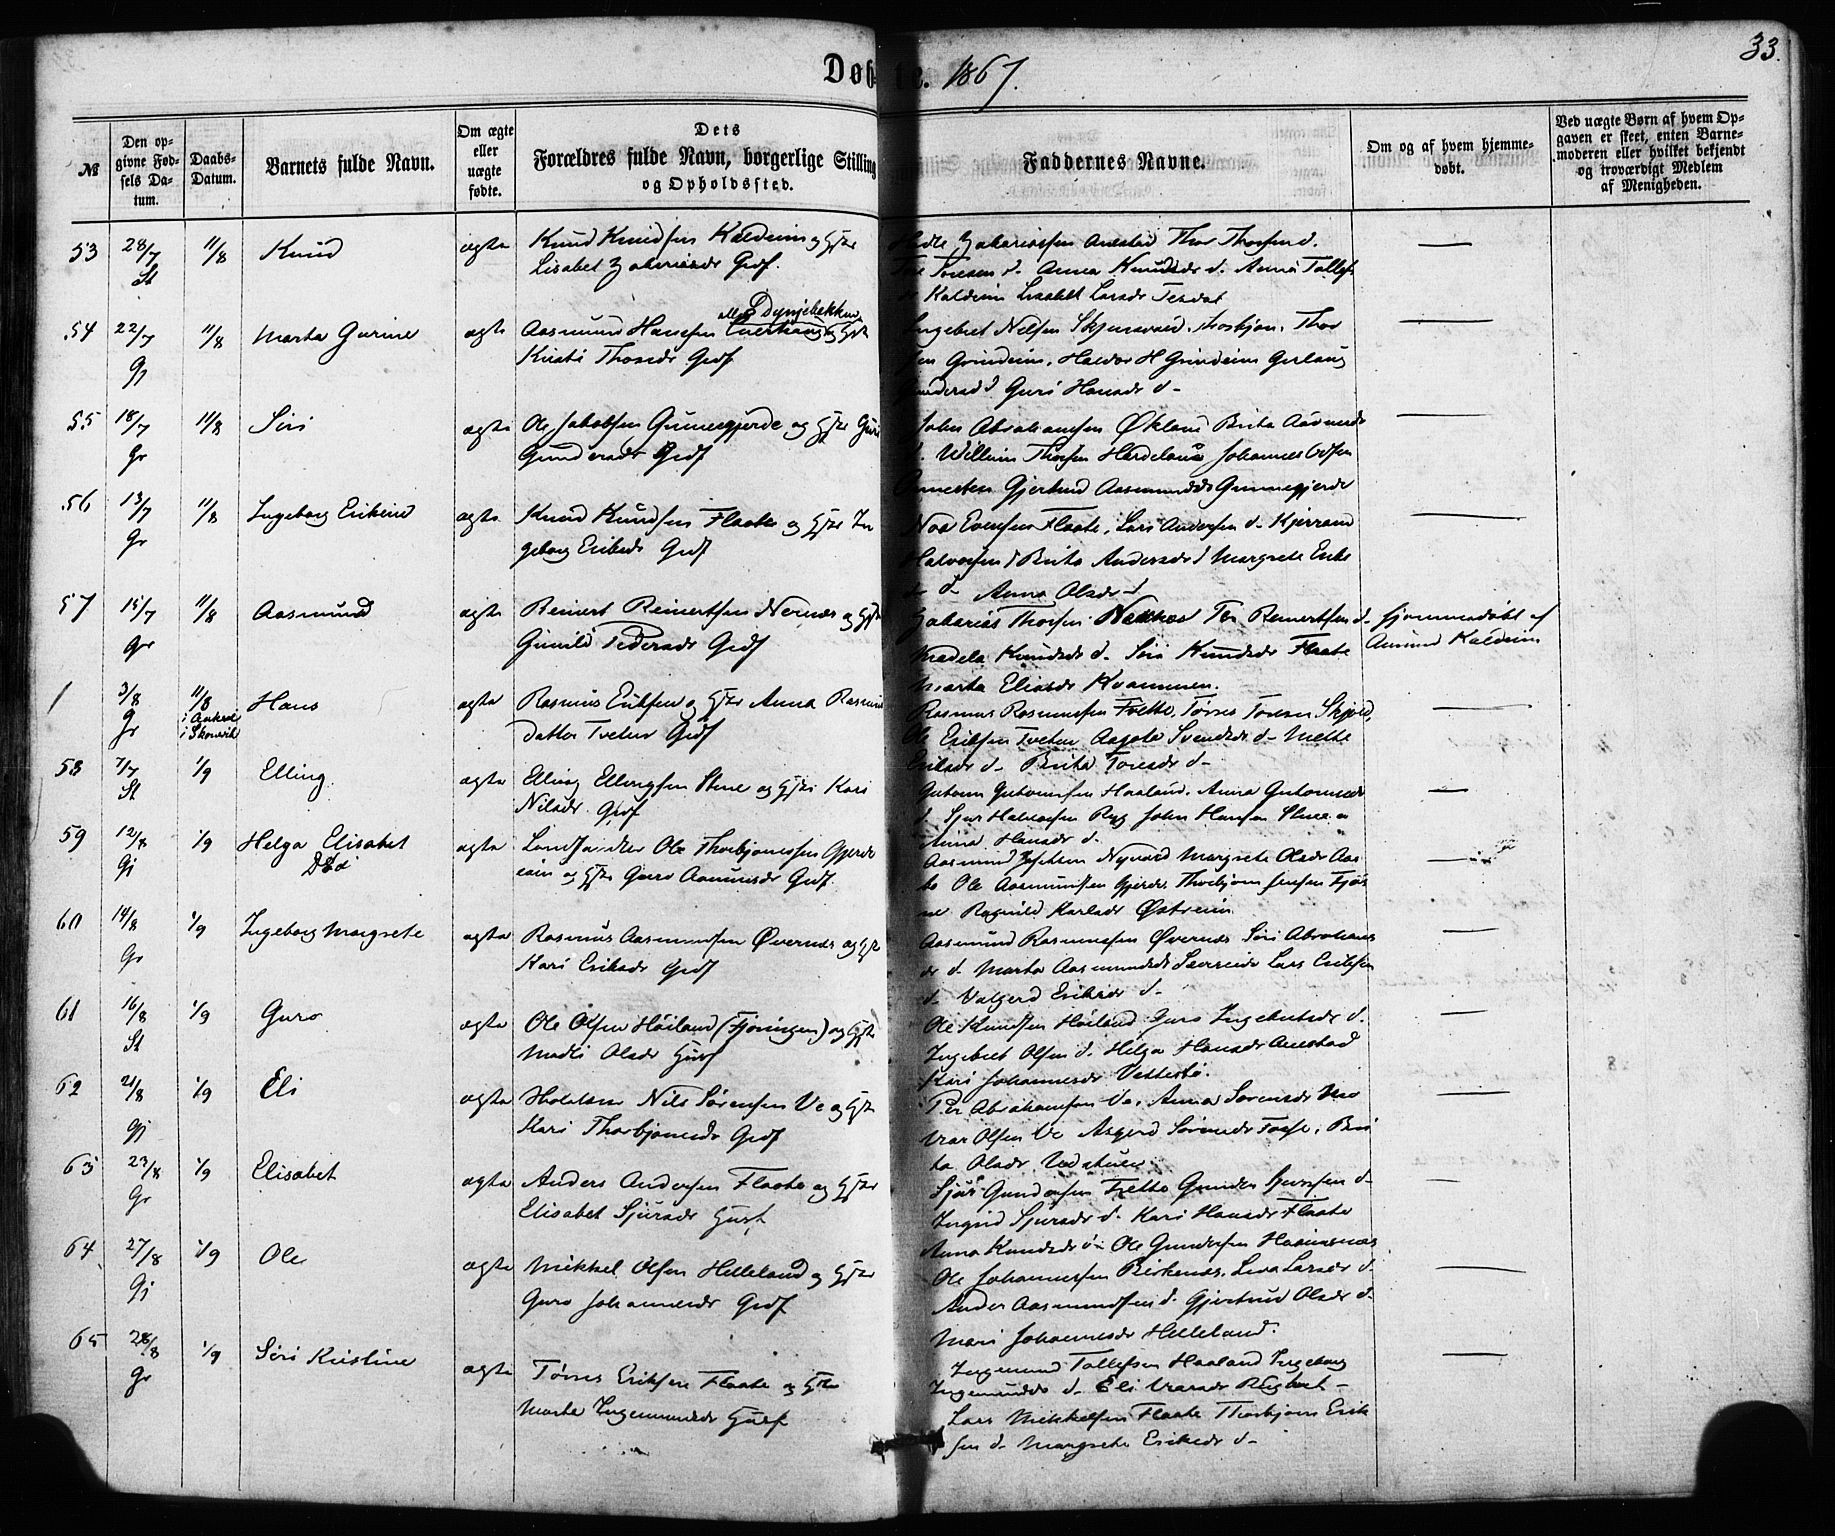 33.
Døbte. 1867.
№
Den opgivne Fødsels Datum.
Daabs-Datum.
Barnets fulde Navn.
Om ægte eller uægte fødte.
Dets Forældres fulde Navn, borgerlige Stilling og Opholdssted.
Faddernes Navne.
Om og af hvem hjemmedøbt.
Ved uægte Børn af hvem Opgaven er skeet, enten Barnemoderen eller hvilket bekjendt og troværdigt Medlem af Menigheden.
53 28/7 St 11/8 Knud ægte Knud Knudsen Kaldeim og Hst
Lisabet Zakariasdr Grdf.
Zakariassen Anestad Thor Thorsen d.
Toresen d. Anna Knudsdr d. Anna Tollefs
Kaldeim Lisabet Larsdr Tesdal
54 22/7 Gj 11/8 Marta Gurine ægte Aasmund Hansen
Dynjebekken
Kristi Thorsdr Grdf
Ingebret Nelsen Thorbjørn Thor
sen Grindeim, Haldor H Grindeim Gerlaug
Gundersd d Guri Hansdr d
55 18/7 Gr 11/8 Siri ægte Ole Jakobsen Gunnegjerde og Hst Guri
Gundersdr Grdf
John Abrahamsen Økland Brita Aamundsdr
d. Willum Thorsen Hardeland Johannes Odsen
Gjertrud Aasmundsdr Gunnegjerde
56 13/7 Gr 11/8 Ingeborg Erikine ægte Knud Knudsen Flaate og Hst In
geborg Eriksdr Grdf
Noa Eversen Flaate, Lars Andersen d. Kjerrand
Halvorsen d Brita Andersdr d Margrete Eriks
d. Anna Olsdr d
57 15/7 Gr 11/8 Aasmund ægte Reinert Reinertsen Nernæs og Hst
Gunild Pedersdr Grdf
Zakarias Thorsen Nernæs Tor Reinertsen d.
Madela Knudsdr d. Siri Knudsdr Flaate
Marta Eliasdr Kvammen.
Hjemmedøbt af
Amund Kaldeim
1 3/8 Gr 11/8 Hans ægte Rasmus Eriksen og Hst Anna Rasmus
datter Tveten Grdf
Rasmus Rasmussen Frette, Tørres Toresen Skjold,
Ole Eriksen Tveten Aagote Svendsdr d. Mette
Eriksdr d. Brita Toresdr d.
58 7/7 St 1/9 Elling ægte Elling Ellingsen Stene og Hst Kari
Nilsdr. Grdf
Gutorm Gutormsen Haaland, Anna Gutormsdr
d. Sjur Halvorsen Ryg John Hansen Stene
Anna Hansdr d.
59 12/8 Gj 1/9 Helga Elisabet ægte
Død
Ole Thorbjørnsen Gjerde
og Hst Guro Aamundsdr Grdf.
Aasmund Nygaard Margrete Olsdr
Ole Aasmundsen Gjerde, Thorbjørn Jensen
Ragnild Karlsdr Østreim
60 14/8 Gr 1/9 Ingeborg Margrete ægte Rasmus Aasmundsen Øvernæs og Hst
Kari Eriksdr Grdf
Aasmund Rasmussen Øvernæs Siri Abrahams
dr d. Marta Aasmundsdr Lars Eriksen
d. Valgerd Eriksdr d.
61 16/8 St 1/9 Guro ægte Ole Olsen Høiland (Fjøringen) og Hst
Madli Olsdr Husf
Ole Knudsen Høiland Guro Ingebretsdr d.
Ingebret Olsen d. Helga Hansdr Anestad
Kari Johannesdr Vettestø.
62 21/8 Gj 1/9 Eli ægte Nils Sørensen Ve og Hst
Kari Thorbjørnsdr Grdf
Per Abrahamsen Ve, Anna Sørensdr
Ivar Olsen Ve Asgerd Sørensdr Bri
ta Olsdr
63 23/8 Gr 1/9 Elisabet ægte Anders Andersen Flaate og Hst
Elisabet Sjursdr Husf
Sjur Gundersen Frette Gunder Sjursen d.
Ingrid Sjursdr d. Kari Hansdr Flaate
Anna Knudsdr d. Ole Gundersen
64 27/8 Gj 1/9 Ole ægte Mikkel Olsen Helleland og Hst
Guro Johannesdr Grdf
Ole Johannessen Birkenæs, Lisa Larsdr d.
Anders Aasmundsen d. Gjertrud Olsdr d.
Mari Johannesdr Helleland.
65 28/8 Gr 1/9 Siri Kristine ægte Tørres Eriksen Flaate og Hst
Marta Ingemundsdr Husf
Ingemund Tollefsen Haaland Ingeborg
Ingemundsdr d. Eli Ivarsdr
Lars Mikkelsen Flaate Thorbjørn Erik
sen d. Margrete Eriksdr d.